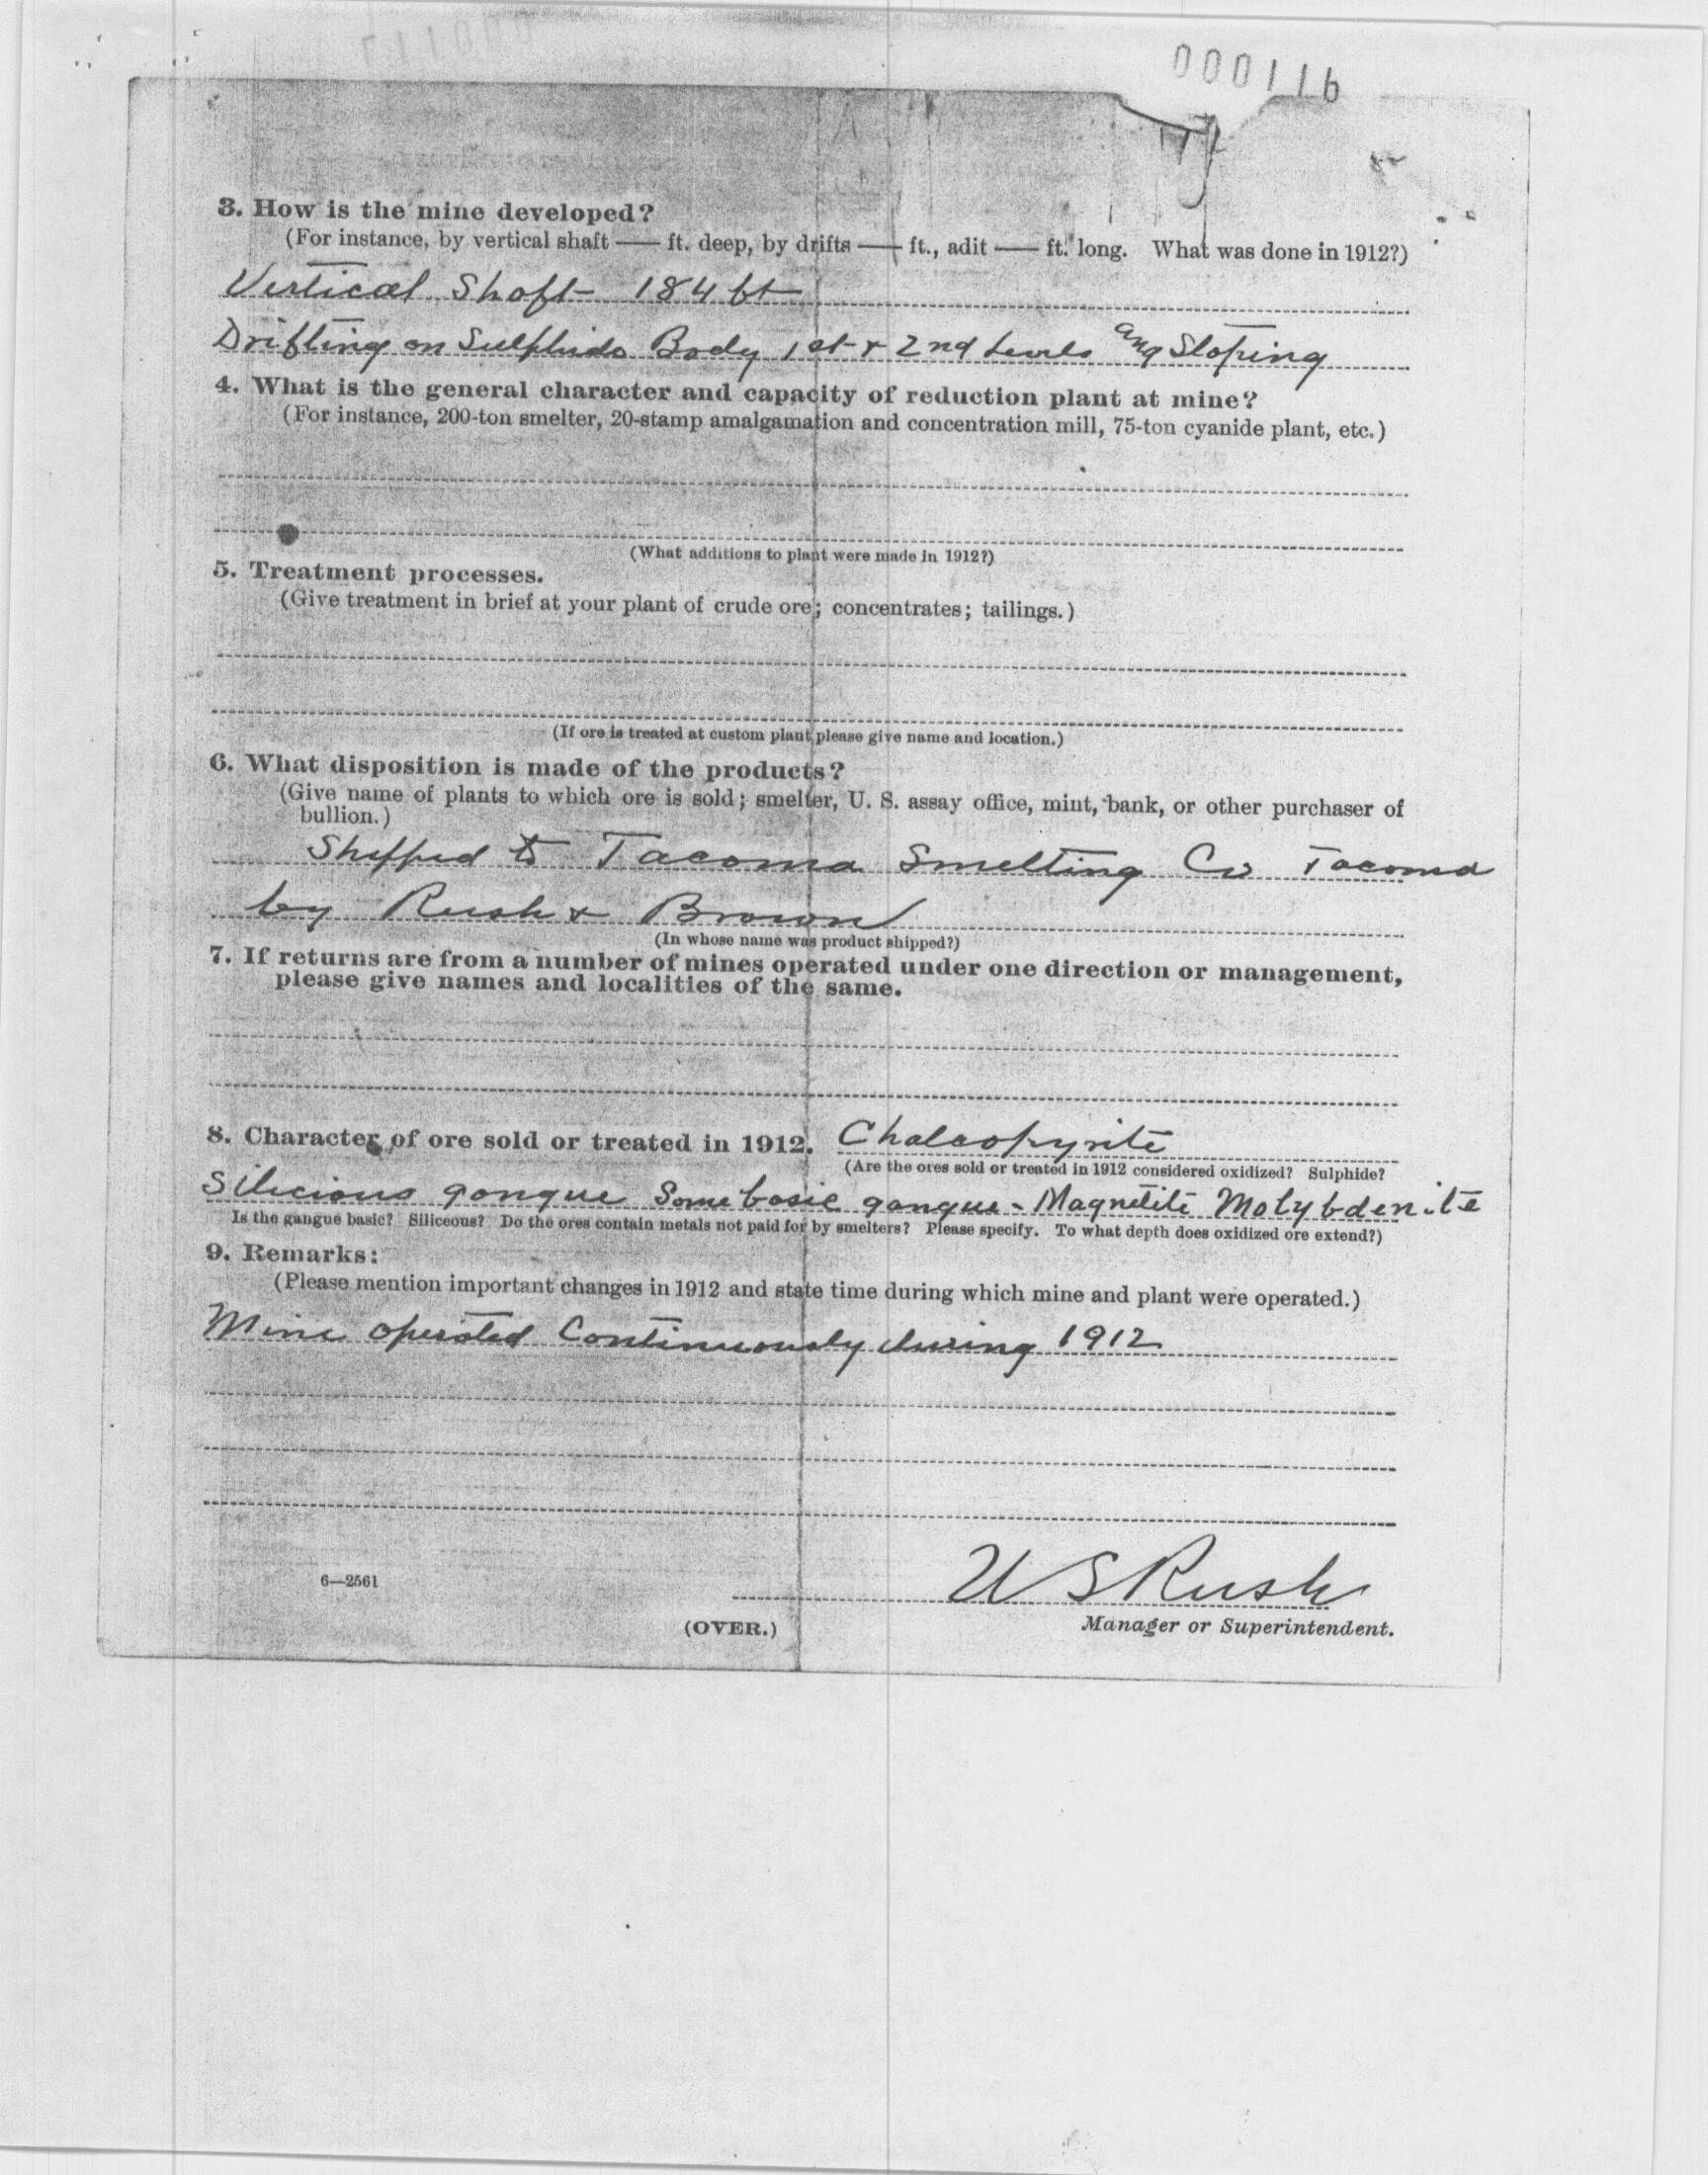 000116
3. How is the mine developed?
(For instance, by vertical shaft —— ft. deep, by drifts —— ft., adit —— ft. long. What was done in 1912?)
Vertical Shaft 184 ft
Drifting on Sulphide Body 1st & 2nd Levels and Stoping
4. What is the general character and capacity of reduction plant at mine?
(For instance, 200-ton smelter, 20-stamp amalgamation and concentration mill, 75-ton cyanide plant, etc.)
(What additions to plant were made in 1912?)
5. Treatment processes.
(Give treatment in brief at your plant of crude ore; concentrates; tailings.)
(If ore is treated at custom plant please give name and location.)
6. What disposition is made of the products?
(Give name of plants to which ore is sold; smelter, U. S. assay office, mint, bank, or other purchaser of
bullion.)
Shipped to Tacoma Smelting Co Tacoma
by Rush & Brown
(In whose name was product shipped?)
7. If returns are from a number of mines operated under one direction or management,
please give names and localities of the same.
8. Character of ore sold or treated in 1912. Chalcopyrite
(Are the ores sold or treated in 1912 considered oxidized? Sulphide?
Silicious gangue Some basic gangue - Magnetite Molybdenite
Is the gangue basic? Siliceous? Do the ores contain metals not paid for by smelters? Please specify. To what depth does oxidized ore extend?)
9. Remarks:
(Please mention important changes in 1912 and state time during which mine and plant were operated.)
Mine operated Continuously during 1912
U S Rush
6—2561
(OVER.)
Manager or Superintendent.